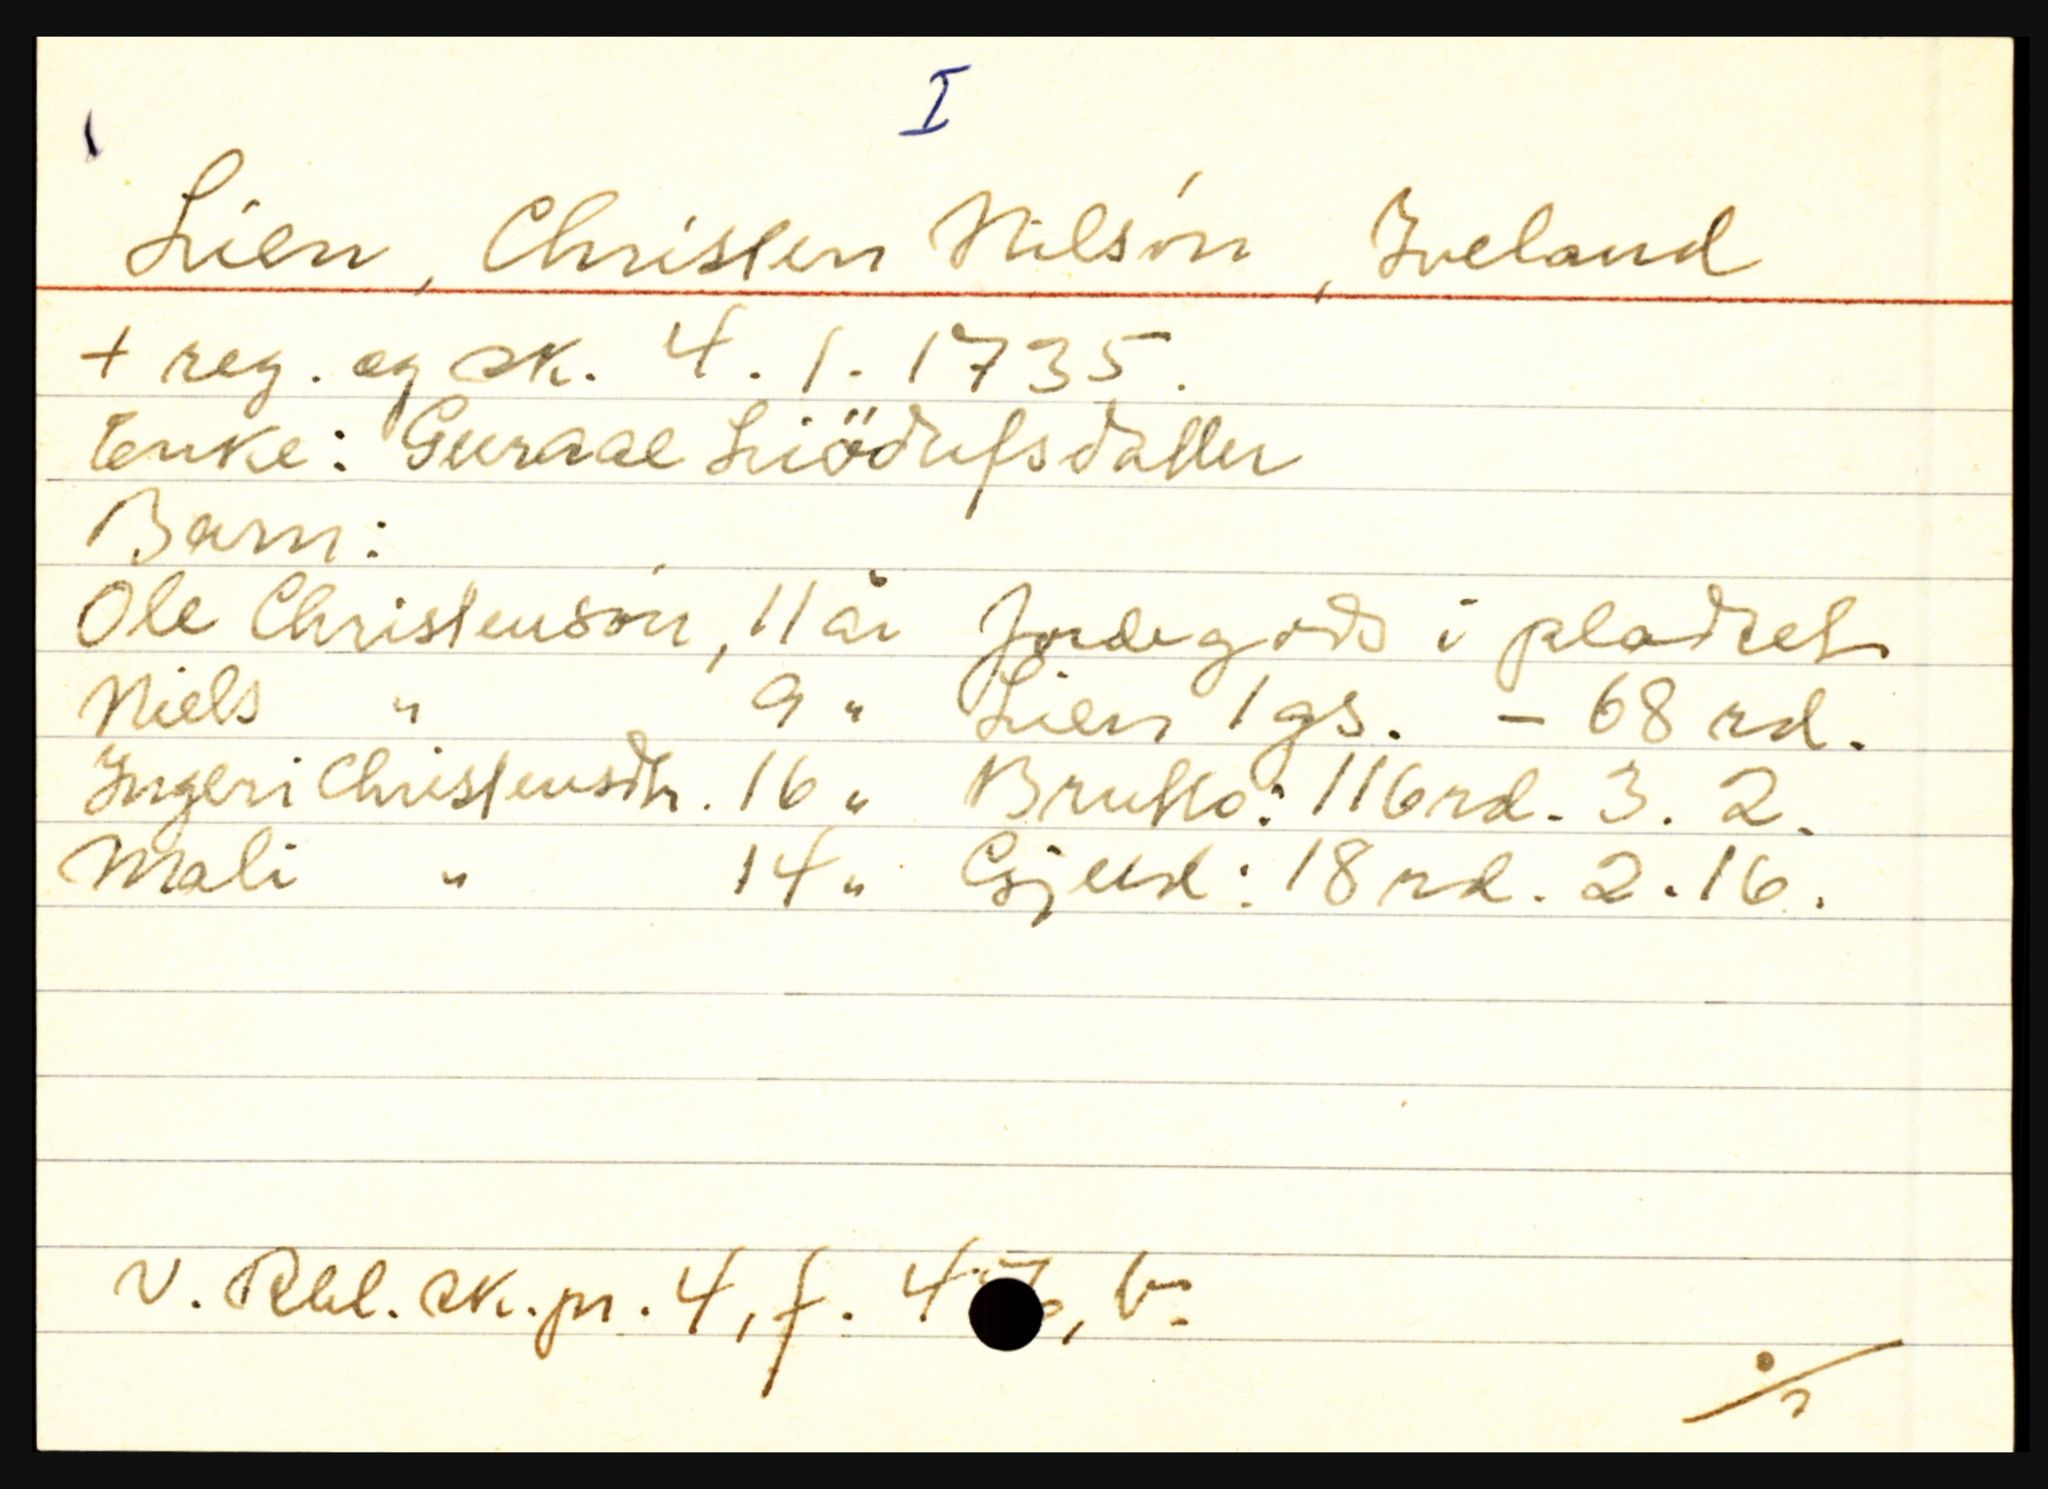 I
Lien, Christen Nilsøn, Iveland
+ reg. og sk. 4.1.1735.
Enke: Guraae Liödufsdatter
Barn:
Ole Christensøn, 11 år Jordegods i pladset
Niels " 9 " Lien 1 gs. - 68 rd.
Ingeri Christensdtr. 16 " Brutto: 116 rd. 3. 2.
Mali " 14 " Gjeld: 18 rd. 2. 16.
V. Rbl. sk. pr. 4, f. , b.